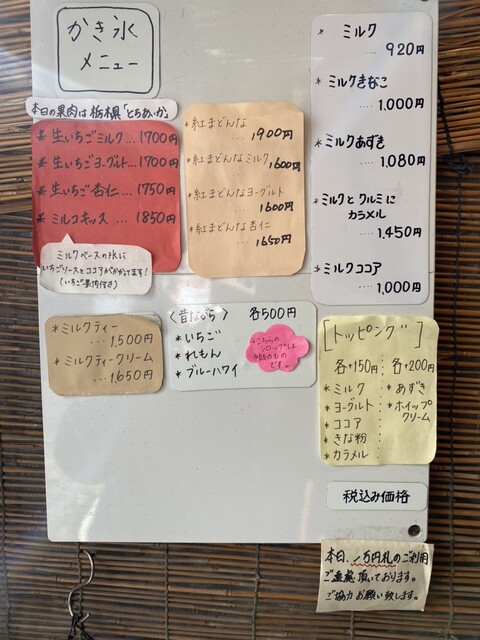 かき氷
メニュー
本日の果肉は栃木県「とちあいか」
* 生いちごミルク … 1700円
* 生いちごヨーグルト … 1700円
* 生いちご杏仁 … 1750円
* ミルコキッス … 1850円
ミルクベースの氷に
いちごソースとココアがかかってます!
(いちご果肉付き)
* 紅まどんな
… 1900円
* 紅まどんなミルク
1600円
* 紅まどんなヨーグルト
… 1600円
* 紅まどんな杏仁
… 1650円
* ミルク
…. 920円
* ミルクきなこ
…. 1,000円
* ミルクあずき
…. 1,080円
* ミルクとクルミに
カラメル
…. 1,450円
* ミルクココア
…. 1,000円
* ミルクティー
… 1,500円
* ミルクティークリーム
… 1,650円
〈昔ながら〉 各500円
* いちご
* れもん
* ブルーハワイ
* こちらの
シロップは
市販のもの
です。
[トッピング]
各+150円
* ミルク
* ヨーグルト
* ココア
* きな粉
* カラメル
各+200円
* あずき
* ホイップ
クリーム
税込み価格
本日、一万円札のご利用
ご遠慮頂いております。
ご協力お願い致します。